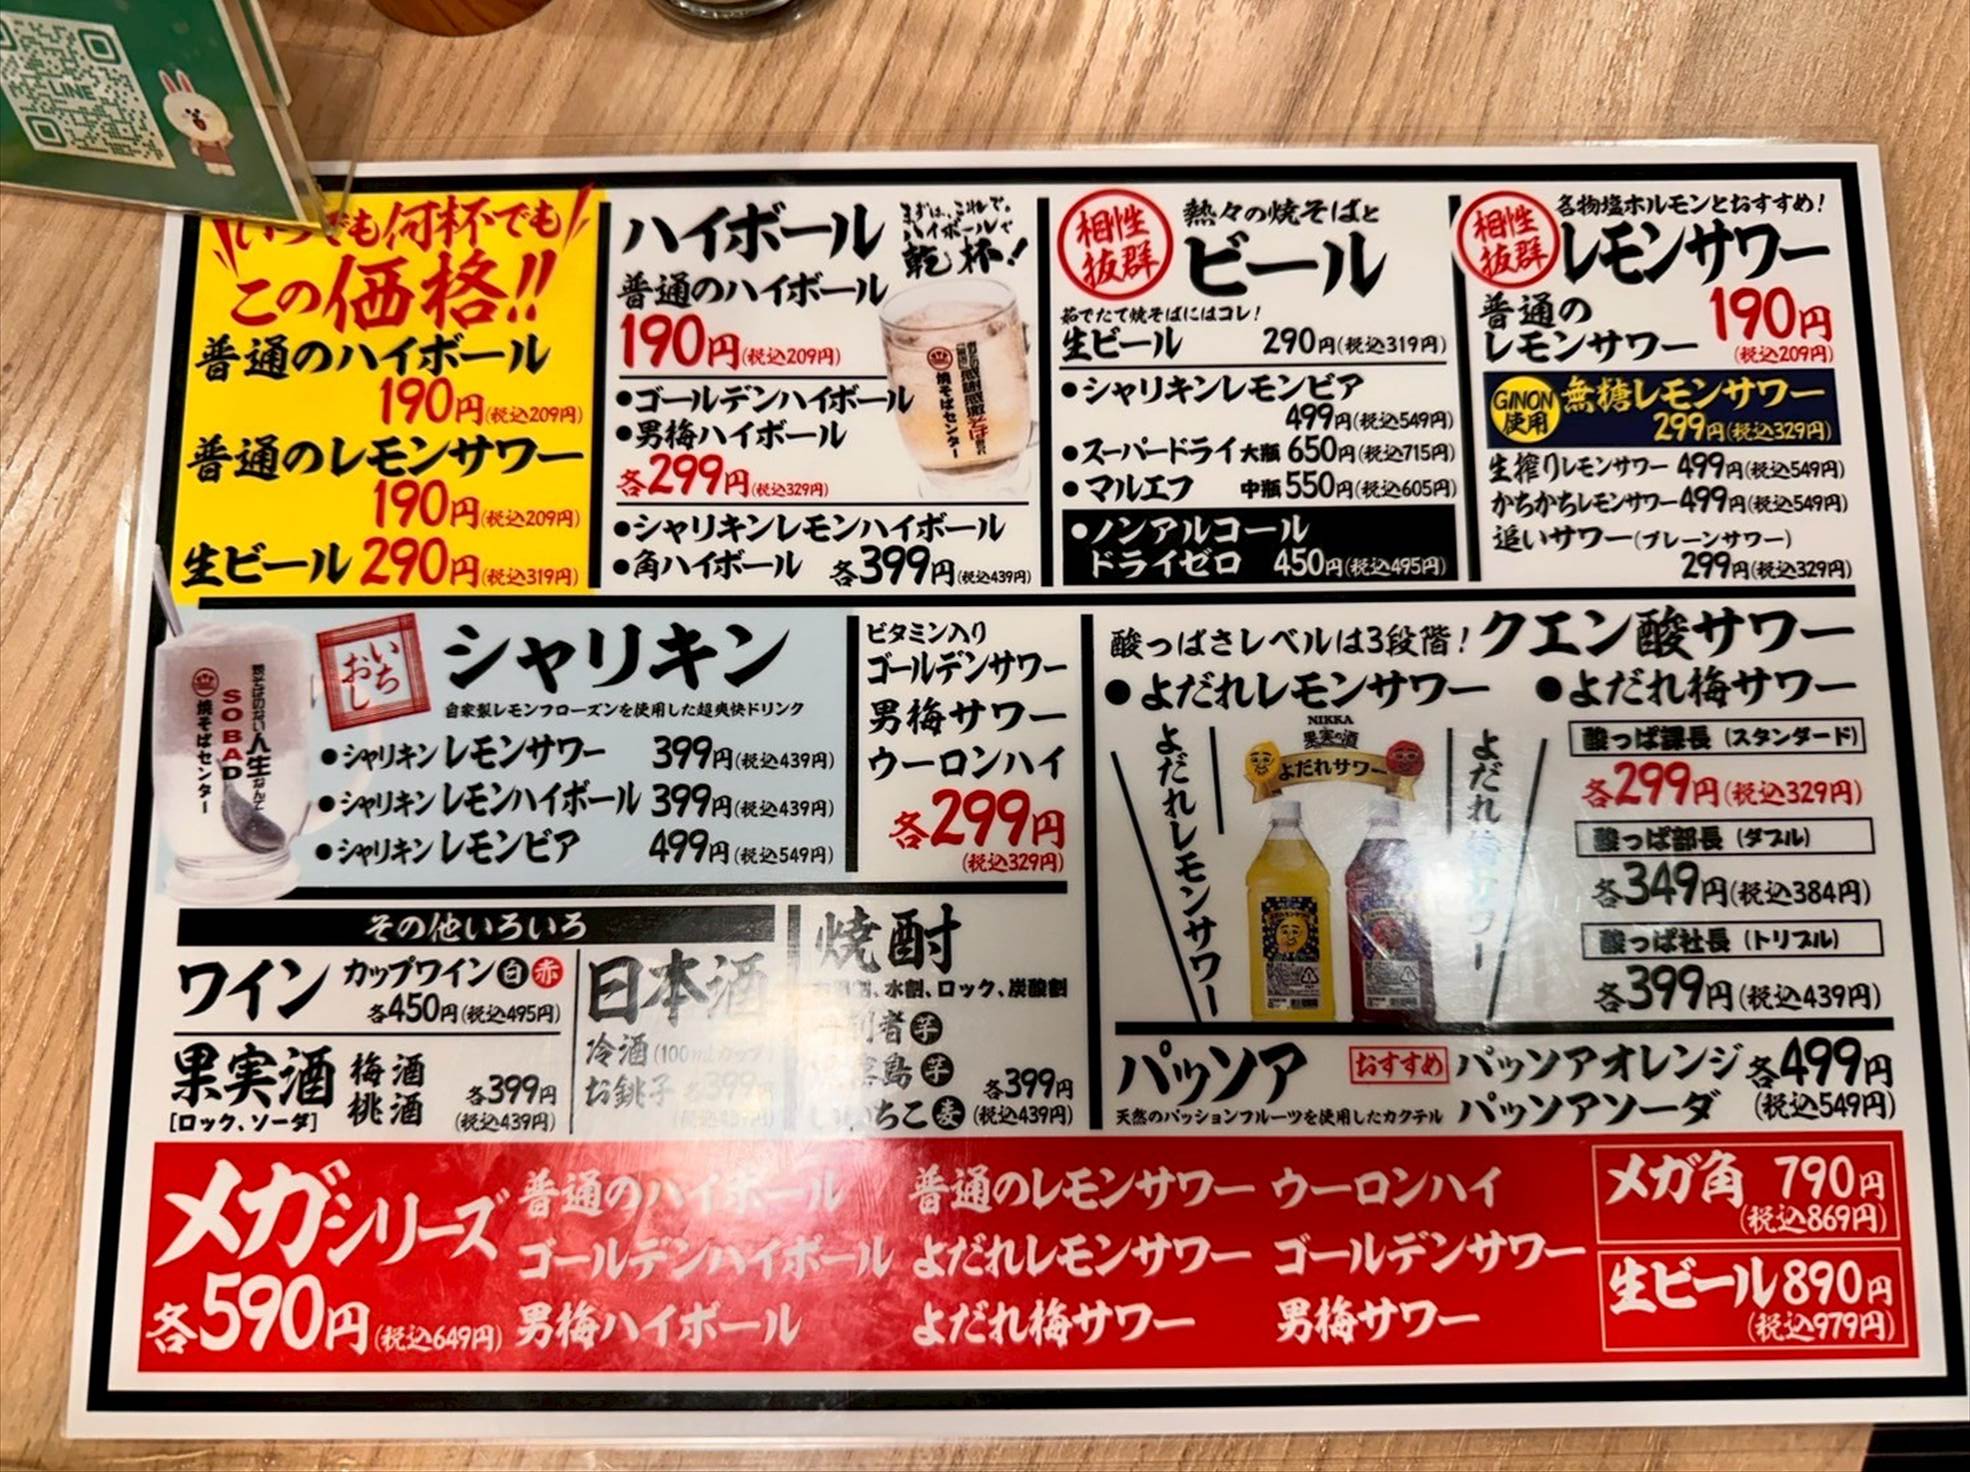 LINE
いつでも何杯でも
この価格!!
普通のハイボール
190円(税込209円)
普通のレモンサワー
190円(税込209円)
生ビール 290円(税込319円)
ハイボール
まずは、これで。
ハイボールで
乾杯!
普通のハイボール
190円(税込209円)
●ゴールデンハイボール
●男梅ハイボール
各299円(税込329円)
●シャリキンレモンハイボール
●角ハイボール 各399円(税込439円)
焼そばセンター
相性抜群
熱々の焼そばと
ビール
茹でたて焼そばにはコレ!
生ビール 290円(税込319円)
●シャリキンレモンビア
499円(税込549円)
●スーパードライ 大瓶 650円(税込715円)
●マルエフ 中瓶 550円(税込605円)
●ノンアルコール
ドライゼロ 450円(税込495円)
相性抜群
名物塩ホルモンとおすすめ!
レモンサワー
普通の
レモンサワー
190円
(税込209円)
GINON使用
無糖レモンサワー
299円(税込329円)
生搾りレモンサワー 499円(税込549円)
かちかちレモンサワー 499円(税込549円)
追いサワー(プレーンサワー)
299円(税込329円)
焼そばのない人生なんて
SOBAD
焼そばセンター
いちおし
シャリキン
自家製レモンフローズンを使用した超爽快ドリンク
●シャリキンレモンサワー 399円(税込439円)
●シャリキンレモンハイボール 399円(税込439円)
●シャリキンレモンビア 499円(税込549円)
ビタミン入り
ゴールデンサワー
男梅サワー
ウーロンハイ
各299円
(税込329円)
酸っぱさレベルは3段階! クエン酸サワー
●よだれレモンサワー ●よだれ梅サワー
よだれレモンサワー
NIKKA
果実の酒
よだれサワー
よだれ梅サワー
酸っぱ課長(スタンダード)
各299円(税込329円)
酸っぱ部長(ダブル)
各349円(税込384円)
酸っぱ社長(トリプル)
各399円(税込439円)
その他いろいろ
ワイン カップワイン 白 赤
各450円(税込495円)
果実酒 梅酒
桃酒
[ロック、ソーダ]
各399円
(税込439円)
日本酒
冷酒(100mLカップ)
お銚子 各399円
(税込439円)
焼酎
水割、ロック、炭酸割
芋
島 芋
いいちこ 麦
各399円
(税込439円)
パッソア
天然のパッションフルーツを使用したカクテル
おすすめ
パッソアオレンジ
パッソアソーダ
各499円
(税込549円)
メガシリーズ
各590円(税込649円)
普通のハイボール 普通のレモンサワー ウーロンハイ
ゴールデンハイボール よだれレモンサワー ゴールデンサワー
男梅ハイボール よだれ梅サワー 男梅サワー
メガ角 790円
(税込869円)
生ビール 890円
(税込979円)